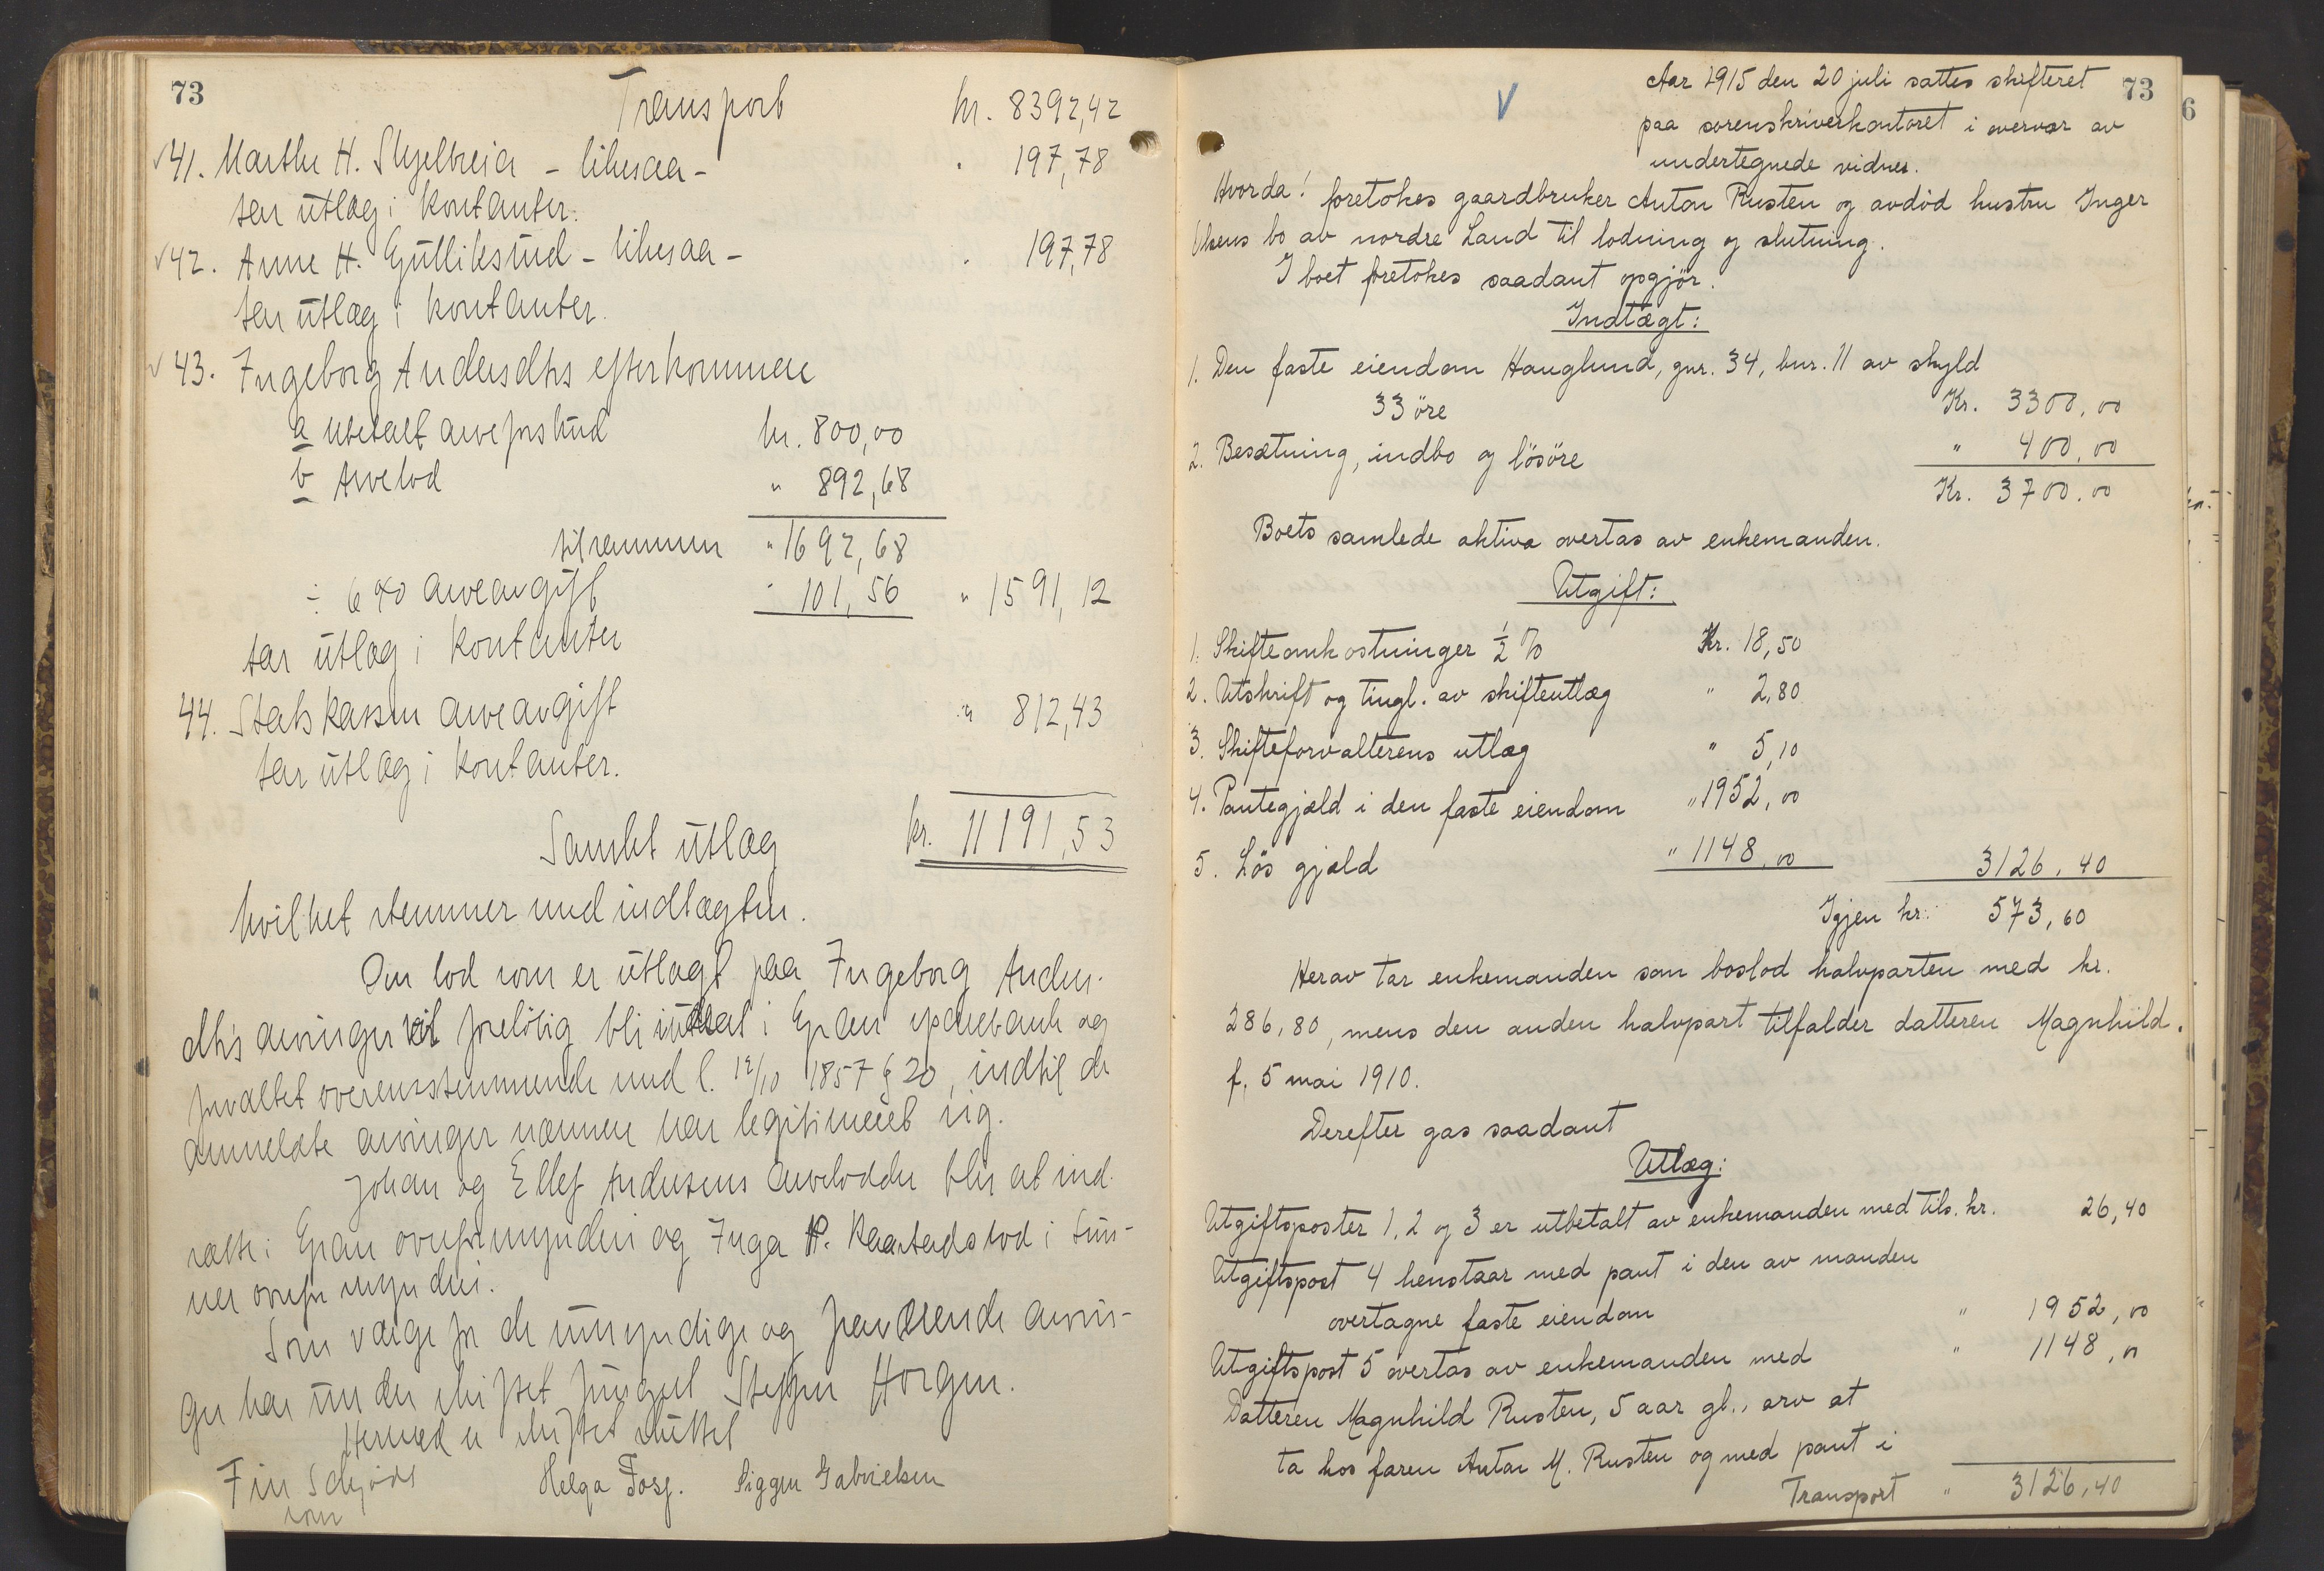 73
Transport kr. 8392,42
41. Marthe H. Skjelbreia - likesaa - " 197,78
tar utlæg i kontanter.
42. Anne H. Gulliksrud - likesaa - " 197,78
tar utlæg i kontanter.
43. Ingeborg Andersdtrs efterkommere
a ubetalt arveforskud kr. 800,00
b Arvelod " 892,68
tilsammen " 1692,68
÷ 6 % arveavgift " 101,56 " 1591,12
tar utlæg i kontanter
44. Statskassen arveavgift " 812,43
tar utlæg i kontanter.
Samlet utlæg kr. 11191,53
hvilket stemmer med indtægten.
Den lod som er utlagt paa Ingeborg Anders-
dtrs arvinger vil foreløbig bli indsat i Gran sparebank og
forvaltet overensstemmende med l. 12/10 1857 § 20, indtil de
anmeldte arvinger nærmere har legitimeret sig.
Johan og Ellef Andersens arvelodder blir at ind-
sætte i Gran overformynderi og Inga P. Kaarstads lod i Sun-
nes overformynderi.
Som værge for de umyndige og fraværende arvin-
ger har under skiftet fungert Steffen Horgen.
Hermed er skiftet sluttet
Fin Schjødt Helga Fosf. Siggen Gabrielsen
som
73
Aar 1915 den 20 juli sattes skifteret
paa sorenskriverkontoret i overvær av
undertegnede vidner.
Hvorda! foretokes gaardbruker Anton Rusten og avdød hustru Inger
Olsens bo av nordre Land til lodning og slutning.
I boet foretokes saadant opgjør.
Indtægt:
1. Den faste eiendom Hauglund, gnr. 34, bnr. 11 av skyld
33 øre Kr. 3300,00
2. Besætning, indbo og løsøre " 400,00
Kr. 3700,00
Boets samlede aktiva overtas av enkemanden.
Utgift:
1. Skifteomkostninger ½ % Kr. 18,50
2. Utskrift og tingl. av skifteutlæg " 2,80
3. Skifteforvalterens utlæg " 5,10
4. Pantegjæld i den faste eiendom " 1952,00
5. Løs gjæld " 1148,00 3126,40
Igjen kr. 573,60
Herav tar enkemanden som boslod halvparten med kr.
286,80, mens den anden halvpart tilfalder datteren Magnhild.
f. 5 mai 1910.
Derefter gas saadant
Utlæg:
Utgiftsposter 1, 2 og 3 er utbetalt av enkemanden med tils. kr. 26,40
Utgiftspost 4 henstaar med pant i den av manden
overtagne faste eiendom " 1952,00
Utgiftspost 5 overtas av enkemanden med " 1148,00
Datteren Magnhild Rusten, 5 aar gl., arv at
ta hos faren Anton M. Rusten og med pant i
Transport " 3126,40
6